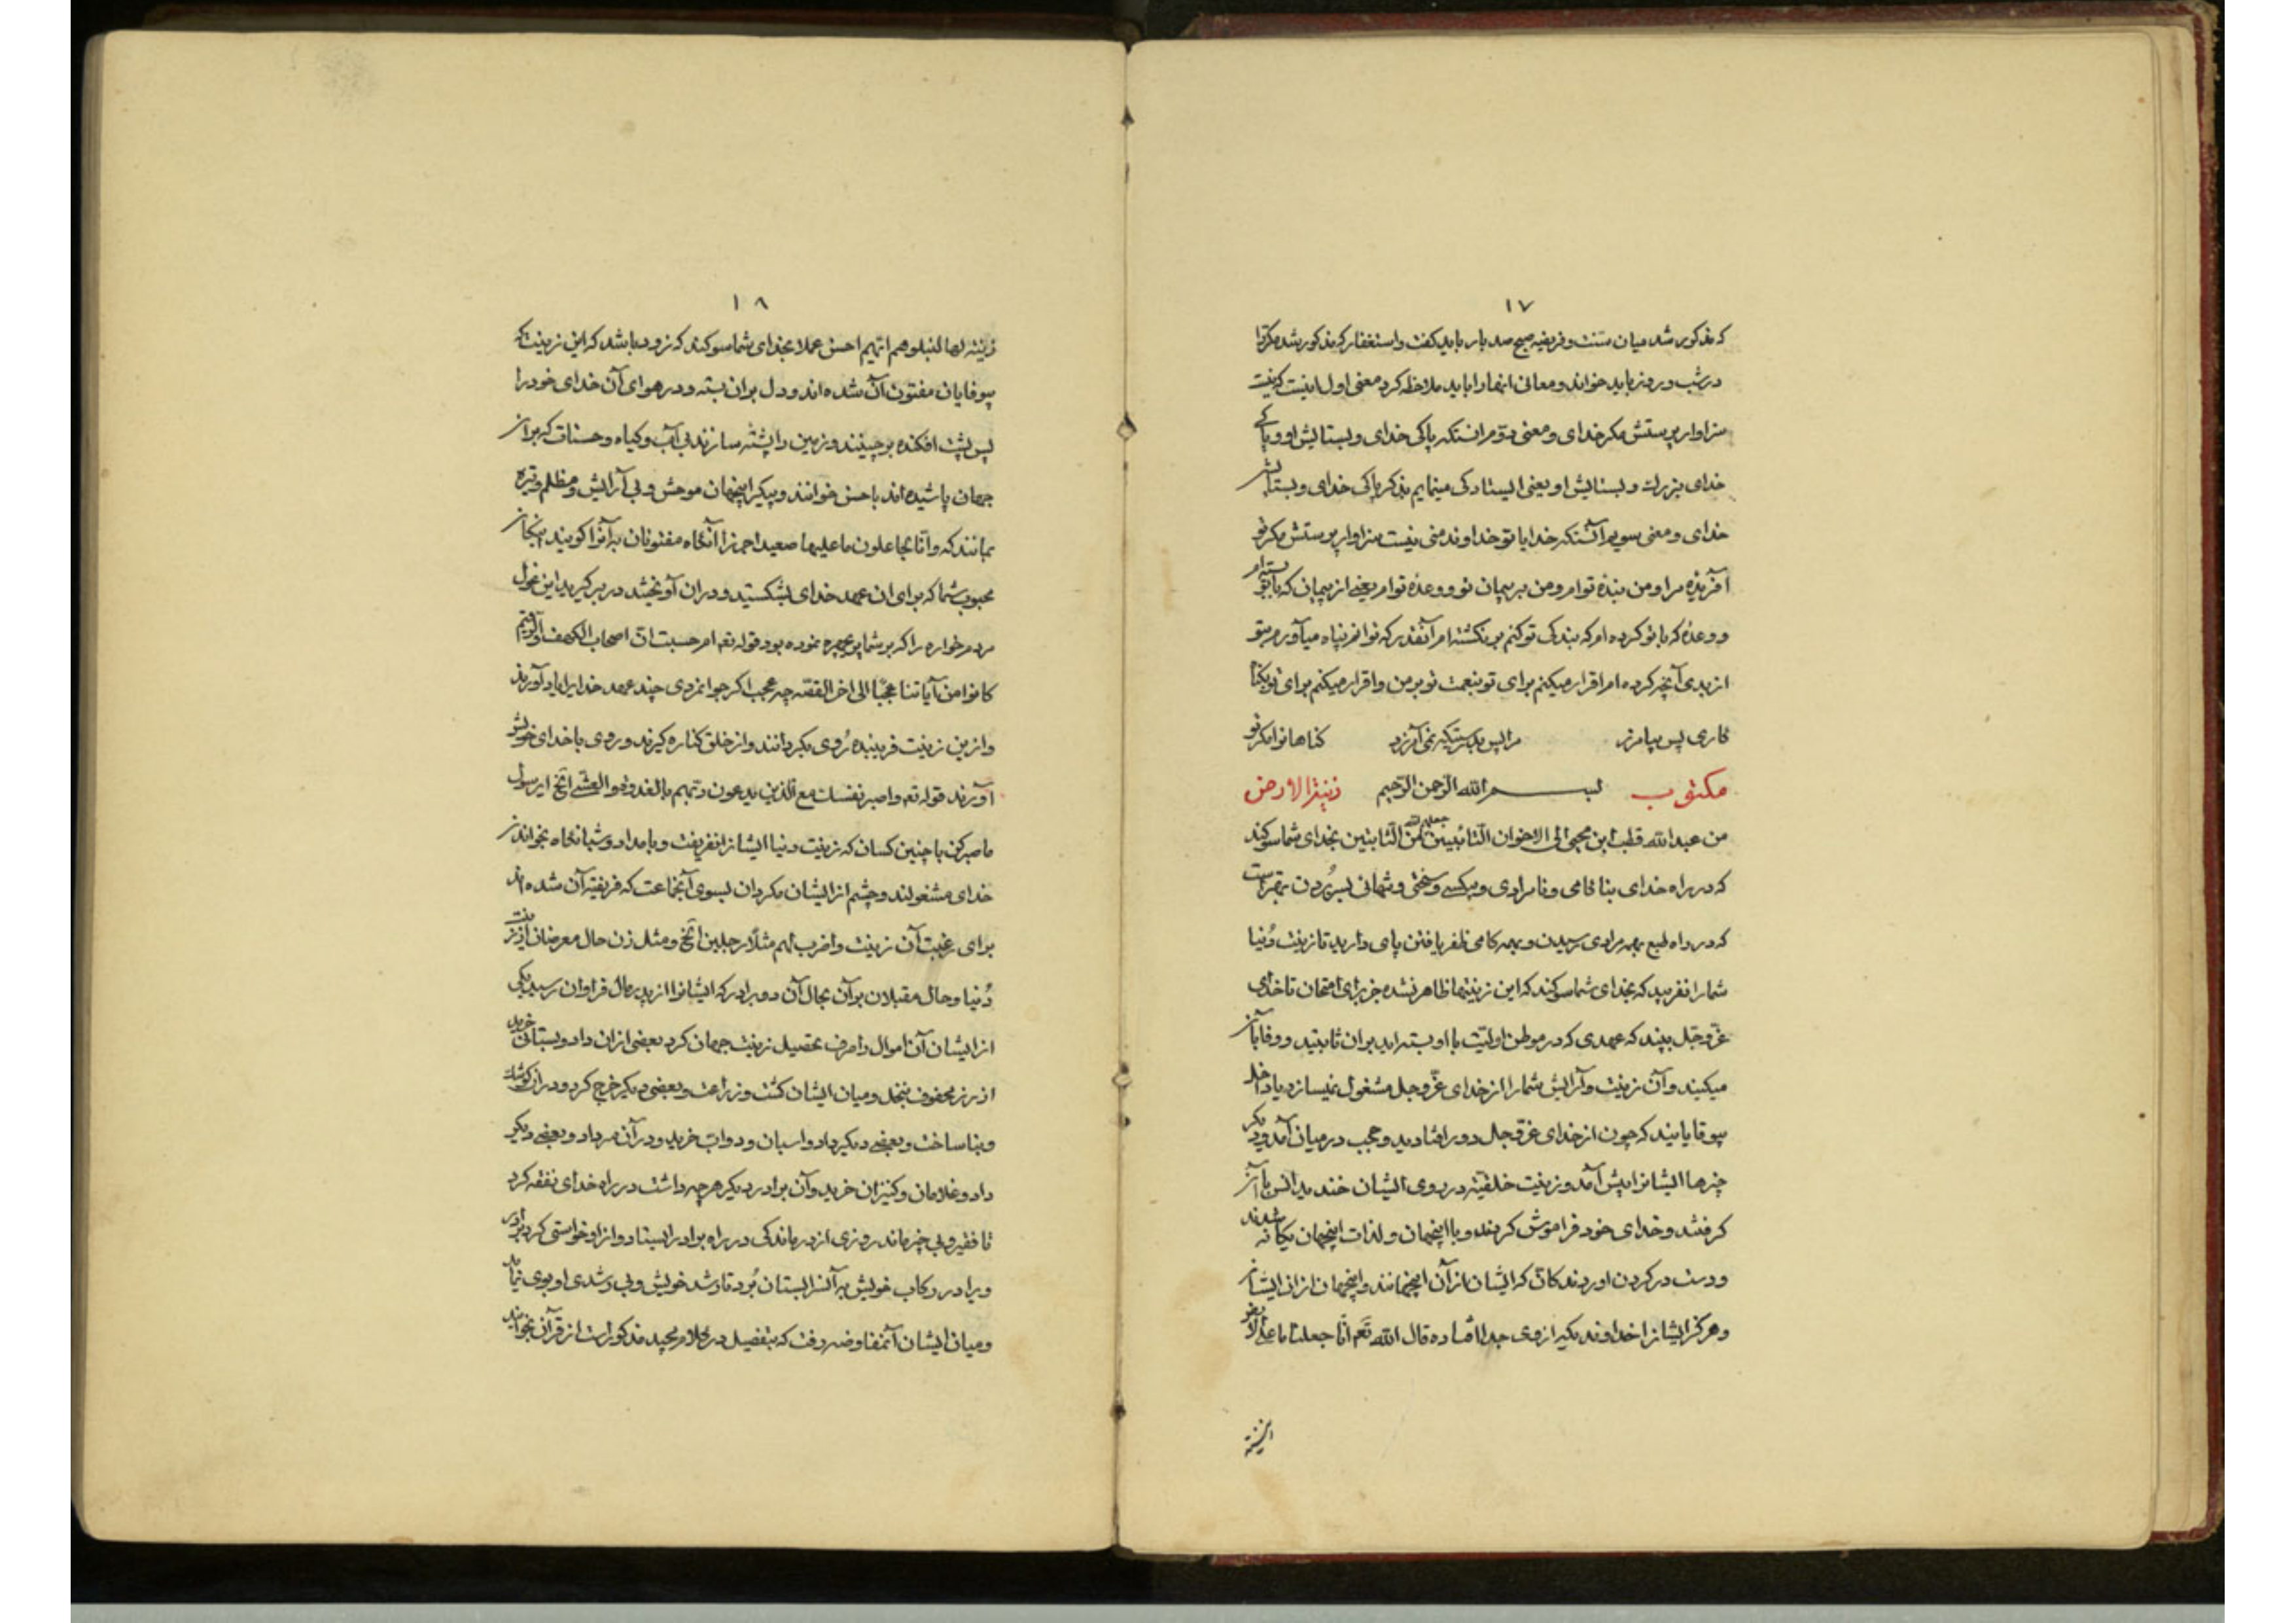 ۱۷
که مذکور شد میان سنت و فریضه صبح صد بار باید گفت و استغفار که مذکور شد مکرّرا
در شب و روز باید خواند و معانی اینها را باید ملاحظه کرد معنی اول اینست که نیست
سزاوار پرستش مگر خدای و معنی دوّم انستکه پاکی خدای و بستایش او و پاکی
خدای بزرك و بستایش او یعنی ایستادکی مینمایم بذکر پاکی خدای و بستایش
خدای و معنی سویم آنستکه خدایا تو خداوند منی نیست سزاوار پرستش مگر تو
آفریدۀ مرا و من بندۀ توام و من بر پیمان تو و وعدۀ توام یعنی از پیمان که با تو بسته‌ام
و وعدۀ که با تو کرده‌ام که بندکی تو کنم بر نکشته‌ام آنقدر که توانم پناه میآورم بتو
از بدی آنچه کرده‌ام اقرار میکنم برای تو بنعمت تو بر من و اقرار میکنم برای تو بکنا
کاری پس بیامرز مرا پس بدرستیکه نمی آمرزد کناهانرا مکر تو
مکتوب بسم الله الرّحمن الرّحیم زینة الارض
من عبدالله قطب ابن محیی الی الاخوان التّائبین جعلهم الله من الثّابتین بخدای شما سوکند
که در راه خدای بناکامی و نامرادی و بیکسی و سختی و شمانی بسر بُردن بهتر است
که در راه طبع بهمه مرادی رسیدن و بهمه کامی ظفر یافتن پای دارید تا زینت دُنیا
شما را نفریبد که بخدای شما سوکند که این زینتها ظاهر نشده جز برای امتحان تا خدای
عزّ و جّل بیند که عهدی که در موطن اولیّت با او بسته‌اید بران ثابتید و وفا بآن
میکنید و آن زینت و آرایش شما را از خدای عزّ و جل مشغول نمیسازد یا داخل
بیوفایانید که چون از خدای عزّ و جل دور افتادید و حجب در میان آمد و دیکر
چیزها ایشانرا پیش آمد و زینت خلقیّه در روی ایشان خندید انس با آن
کرفتند و خدای خود فراموش کردند و با اینجهان و لذات اینجهان یکانه شدند
و دست در کردن اوردند کانّ که ایشان از آن اینجهانند و اینجهان از ان ایشان
و هرکز ایشانرا خداوند یکه ازوی جدا افتاده قال الله تعم انّا جعلنا ما علی الارض
۱۸
زینة لها لنبلوهم ایّهم احسن عملا بخدای شما سوکند که زود باشد که این زینت که
بیوفایان مفتون آن شده‌اند و دل بران بسته و در هوای آن خدای خود را
پس پشت افکنده برچینند و زمین را پشته سازند بی آب و کیاه و حسنات که بر ان
جهان پاشیده‌اند باحسن خوانند و پیکر اینجهان موحش و بی آرایش و مظلم و تیره
بمانند که و انّا لجاعلون ما علیها صعیدا جرزا آنکاه مفتونان به آنرا کویند اینک آن
محبوب شما که برای ان عهد خدای بشکستید و دران آویختید در بر کیرید این غول
مردم خواره را که بر شما چهره نموده بود قوله تعم ام حسبت انّ اصحاب الکهف و الرّقیم
کانوا من آیاتنا عجبًا الی اخر القصّه چه عجب اکر جوانمردی چند عهد خدایرا یاد آورند
و از این زینت فریبنده رُوی بکردانند و از خلق کناره کیرند و روی با خدای خویش
آورند قوله تعم و اصبر نفسك مع الّذین یدعون ربّهم بالغدوة و العشّی الخ ای رسول
ما صبر کن با چنین کسان که زینت دنیا ایشانرا نفریفت و بامداد و شبانکاه بخواندن
خدای مشغولند و چشم از ایشان مکردان بسوی آنجماعت که فریفته آن شده‌اند
برای رغبت آن زینت و اضرب لهم مثلًا رجلین الخ و مثل زن حال معرضان از زینت
دُنیا و حال مقبلان بر آن بحال آن دو برادر که ایشانرا از پدر مال فراوان رسید یکی
از ایشان آن اموال را صرف تحصیل زینت جهان کرد بعضی از ان داد و بستانی خرید
از رز محفوف بنخل و میان ایشان کشت و زراعت و بعضی دیکر خرج کرد و دران کوشك
و بنا ساخت و بعضی دیکر داد و اسبان و دواب خرید و در آن سر داد و بعضی دیکر
داد و غلامان و کنیزان خرید و آن برادر دیکر هرچه داشت در راه خدای نفقه کرد
تا فقیر و بی چیز ماند روزی از درماندکی در راه برادر ایستاد و از او خواستی کرد برادر
ویرا در رکاب خویش به آن بستان بُرد تا رشد خویش و بی رشدی او بوی نماید
و میان ایشان آنمفاوضه رفت که بتفصیل در کلام مجید مذکور است از قرآن بخوانید